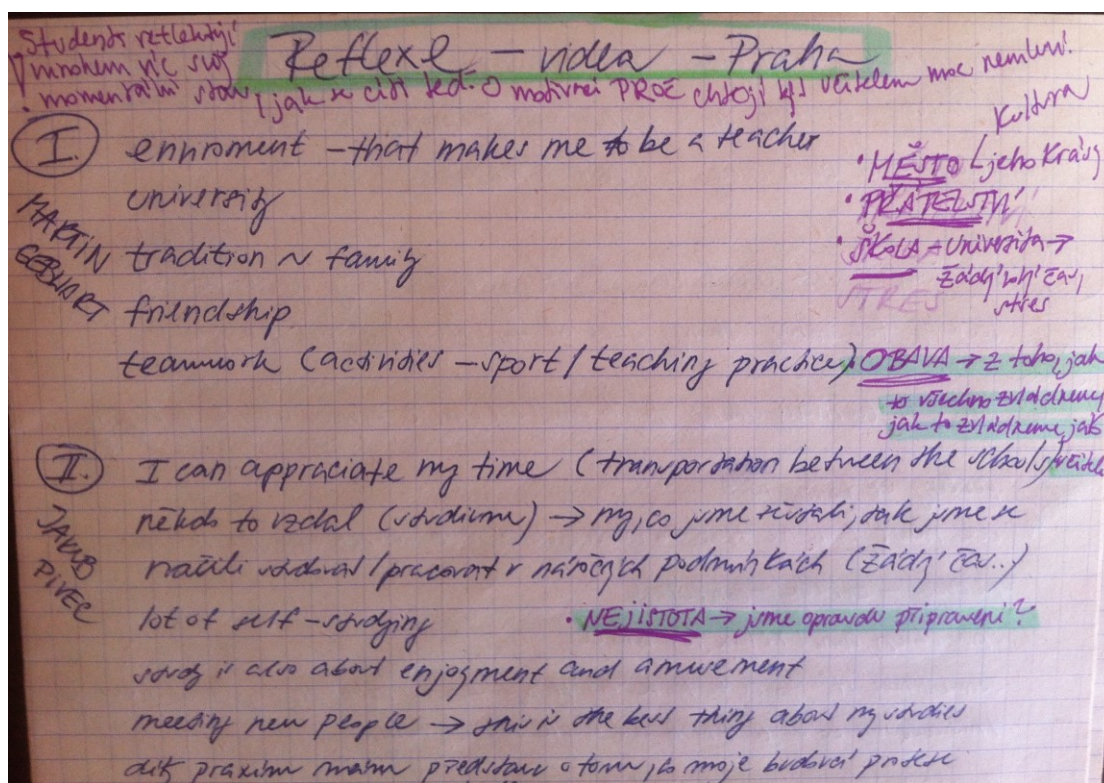 Studenti reflektují
mnohem víc svůj
momentální stav, jak se cítí teď. O motivaci PROČ chtějí být učitelem moc nemluví.
Reflexe - videa - Praha
I. enviroment - that makes me to be a teacher
university
tradition ~ family
friendship
teamwork (activities - sport / teaching practice)
MARTIN
GEBHART
Kultura
• MĚSTO (jeho krásy
• PŘÁTELSTVÍ
• ŠKOLA - Univerzita →
žádný volný čas,
stres
STRES
OBAVA → z toho, jak
to všechno zvládneme,
jak to zvládneme jako
učitelé
II. I can appraciate my time (transportation between the schools)
někdo to vzdal (studium) → my, co jsme zůstali, tak jsme se
naučili studovat / pracovat v náročných podmínkách (žádný čas..)
lot of self-studying
• NEJISTOTA → jsme opravdu připraveni?
study is also about enjoyment and amusement
meeting new people → this is the best thing about my studies
díky praxím mám představu o tom, co moje budoucí profese
JAKUB
PIVEC